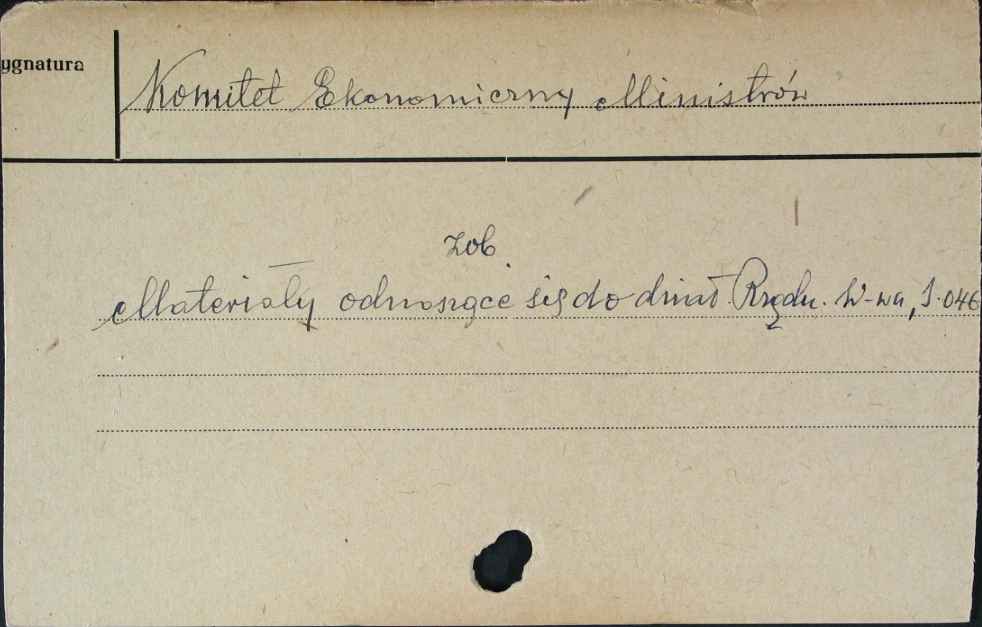 ygnatura
Komitet Ekonomiczny Ministrów
zob.
Materiały odnoszące się do dział. Rządu. W-wa, S.046